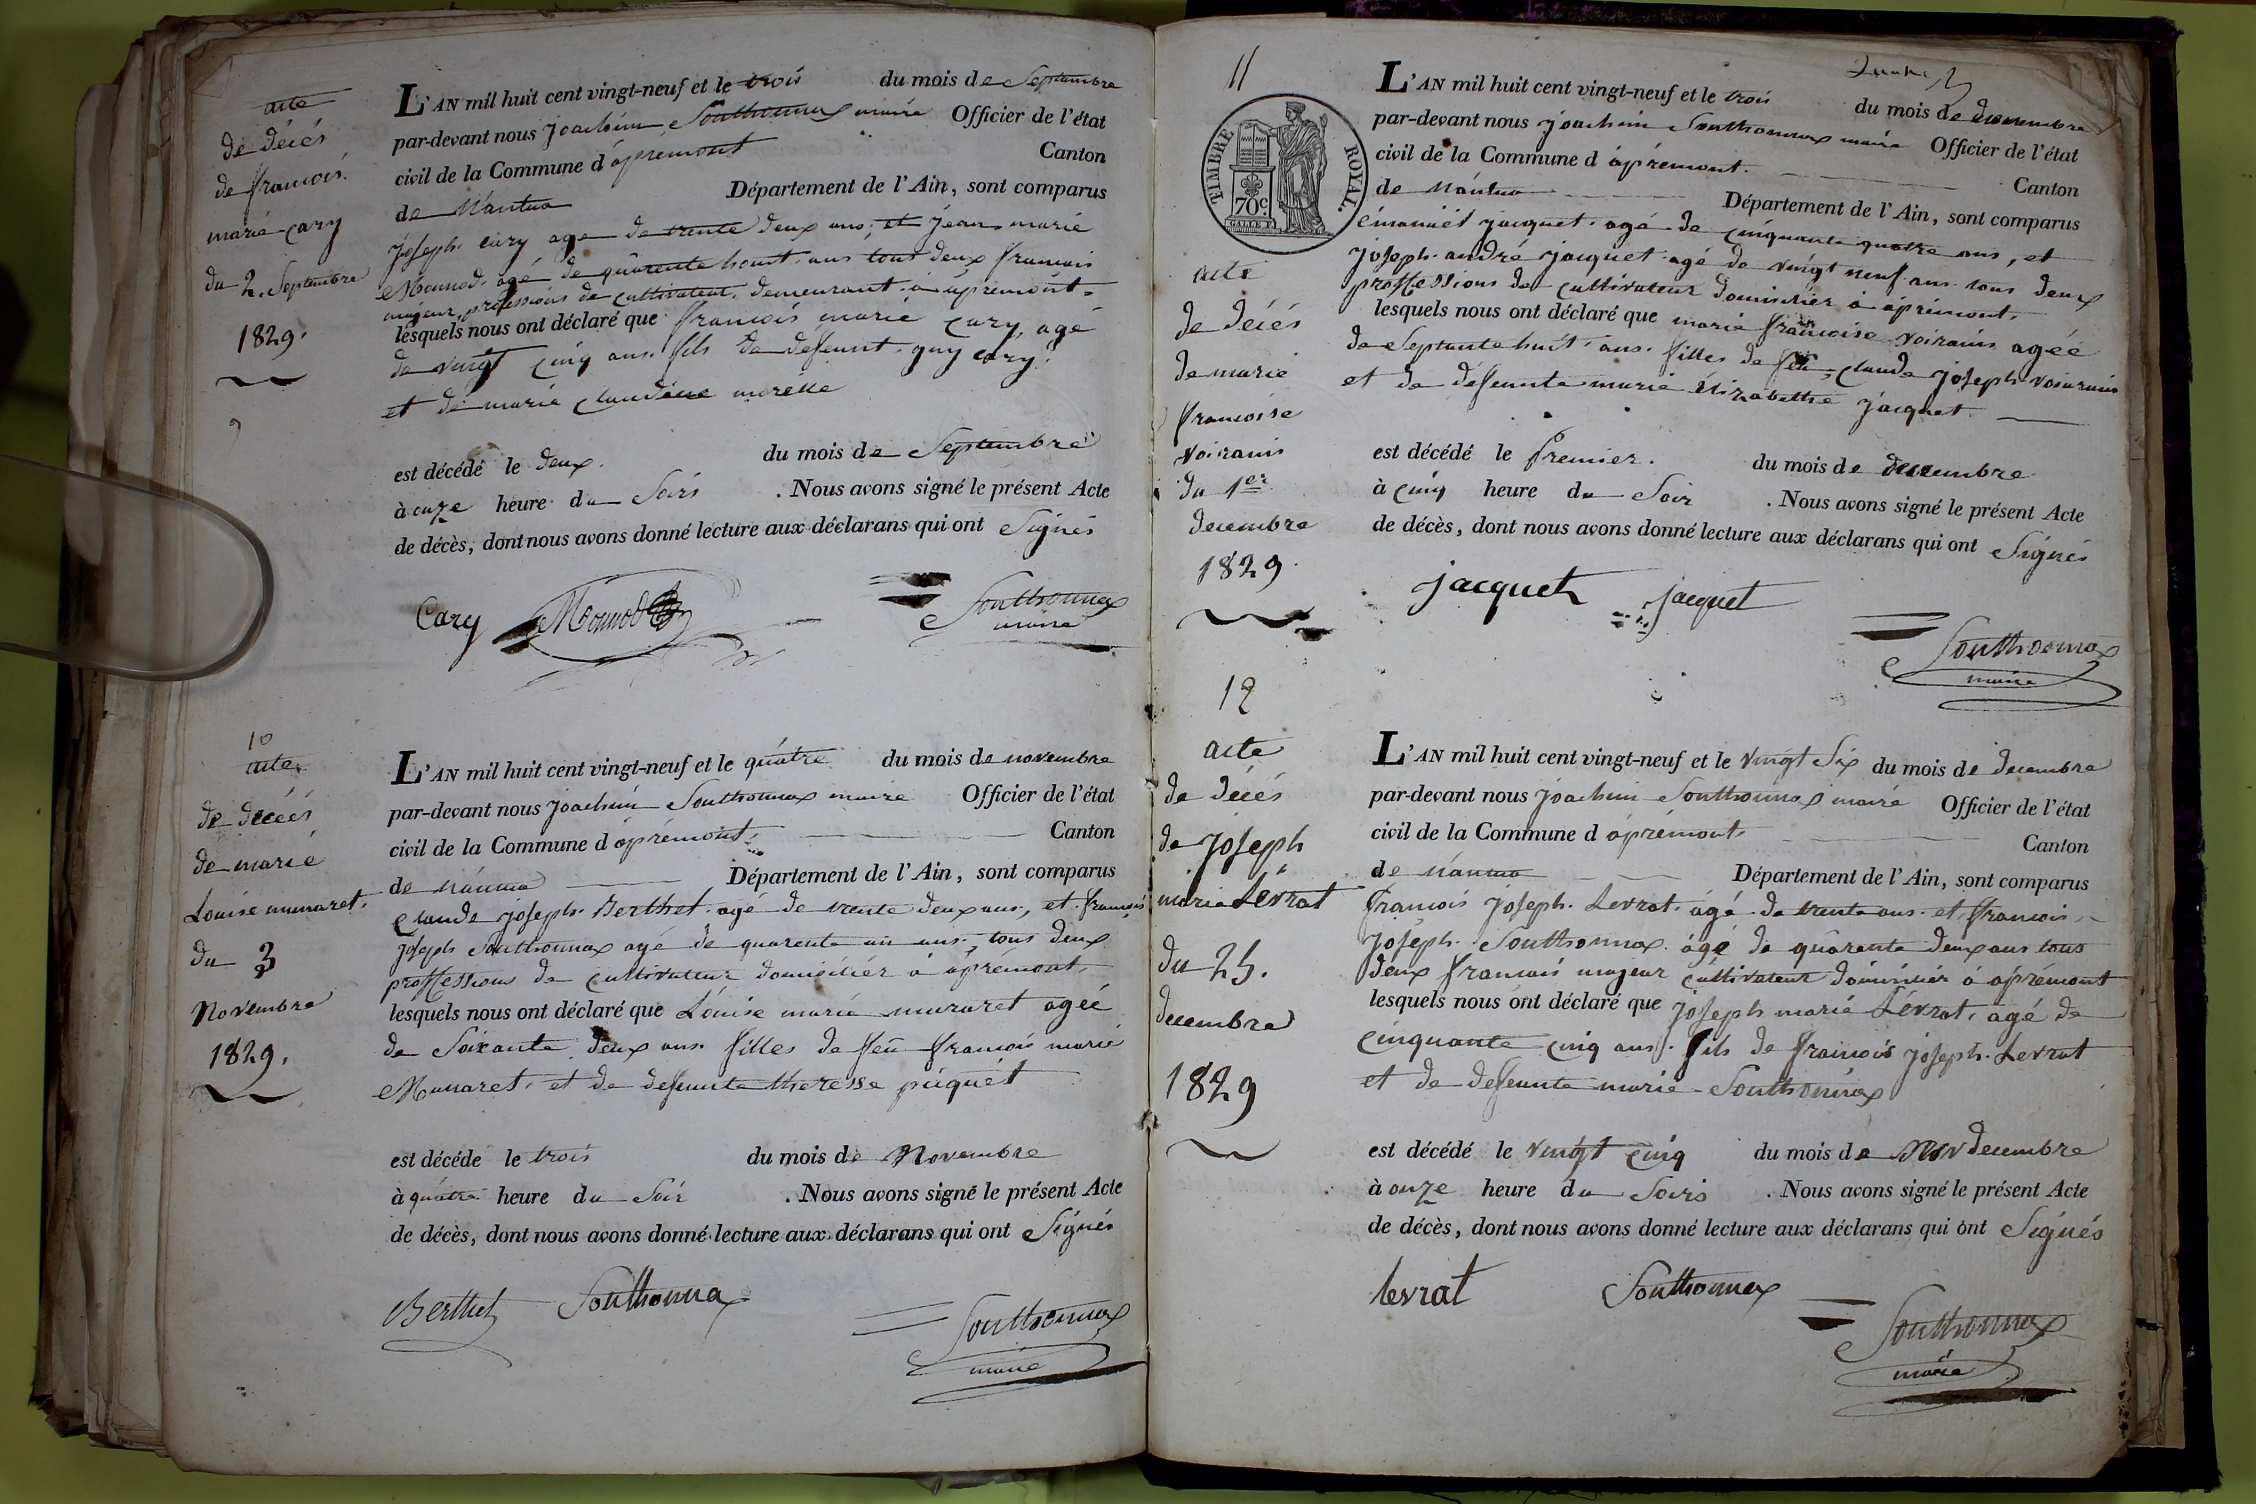 acte
de décés
de francois
marie cary
du 2. Septembre
1829.
9
L'AN mil huit cent vingt-neuf et le trois du mois de Septembre
par-devant nous joachim Southonnax maire Officier de l'état
civil de la Commune d'áprémont Canton
de Nántua Département de l'Ain, sont comparus
joseph cary age de trente deux ans, et jean marie
Monnod. agé de quarente huit ans tout deux francais
majeur, professions de cultivateur. demeurant á áprémont.
lesquels nous ont déclaré que francois marie cary, agé
de vingt cinq ans. fils de deffeunt guy cary.
et de marie claudine morelle
est décédé le deux. du mois de Septembre
à onze heure du Soirs . Nous avons signé le présent Acte
de décès, dont nous avons donné lecture aux déclarans qui ont Signés
Cary Monnod Southonnax
maire
10
acte
de décés
de marie
Louise munaret.
du 3
Novembre
1829.
L'AN mil huit cent vingt-neuf et le quátre du mois de novembre
par-devant nous joachim Southonnax maire Officier de l'état
civil de la Commune d'áprémont. Canton
de nántua Département de l'Ain, sont comparus
claude joseph. Berthet. agé de trente deux ans, et francois
joseph Southonnax agé de quarente un ans, tous deux
proffessions de cultivateur domicilier á áprémont.
lesquels nous ont déclaré que Loúise marie munaret ageé
de Soixante deux ans. filles de feu francois marie
Munaret. et de deffeunte theresse piequet
est décéde le trois du mois de Novembre
à quátre heure du Soir . Nous avons signé le présent Acte
de décès, dont nous avons donné lecture aux déclarans qui ont Signés
Berthet Southonnax
Southonnax
maire
11
TIMBRE ROYAL.
70c.
acte
de décés
de marie
francoise
voiranis
du 1er
decembre
1829.
L'AN mil huit cent vingt-neuf et le trois du mois de decembre
par-devant nous joachim Southonnax maire Officier de l'état
civil de la Commune d'áprémont. Canton
de Nántua Département de l'Ain, sont comparus
émanuél jacquet. agé de cinquante quatre ans, et
joseph. andré jacquet agé de vingt neuf ans. tous deux
proffessions de cultivateur domicilier á áprémont.
lesquels nous ont déclaré que marie francoise voiranis ageé
de Septante huit. ans. filles de feu, claude joseph voiranis
et de deffeunte marie élizabethe jacquet
est décédé le Premier. du mois de decembre
à cinq heure du Soir . Nous avons signé le présent Acte
de décès, dont nous avons donné lecture aux déclarans qui ont Signés
jacquet jacquet
Southonnax
maire
12
acte
de décés
de joseph
marie Levrat
du 25.
decembre
1829
L'AN mil huit cent vingt-neuf et le vingt Six du mois de decembre
par-devant nous joachim Southonnax maire Officier de l'état
civil de la Commune d'áprémont. Canton
de nántua Département de l'Ain, sont comparus
francois joseph. Levrat. ágé de trente ans. et francois
joseph. Southonnax. ágé de quarante deux ans tous
deux francais majeur cultivateur domicilier á áprémont
lesquels nous ont déclaré que joseph marie Lévrat. agé de
cinquante cinq ans. fils de francois joseph. Levrat
et de deffeunte marie Southonnax
est décédé le vingt cinq du mois de decembre
à onze heure du Soirs . Nous avons signé le présent Acte
de décès, dont nous avons donné lecture aux déclarans qui ont Signés
levrat Southonnax
Southonnax
maire